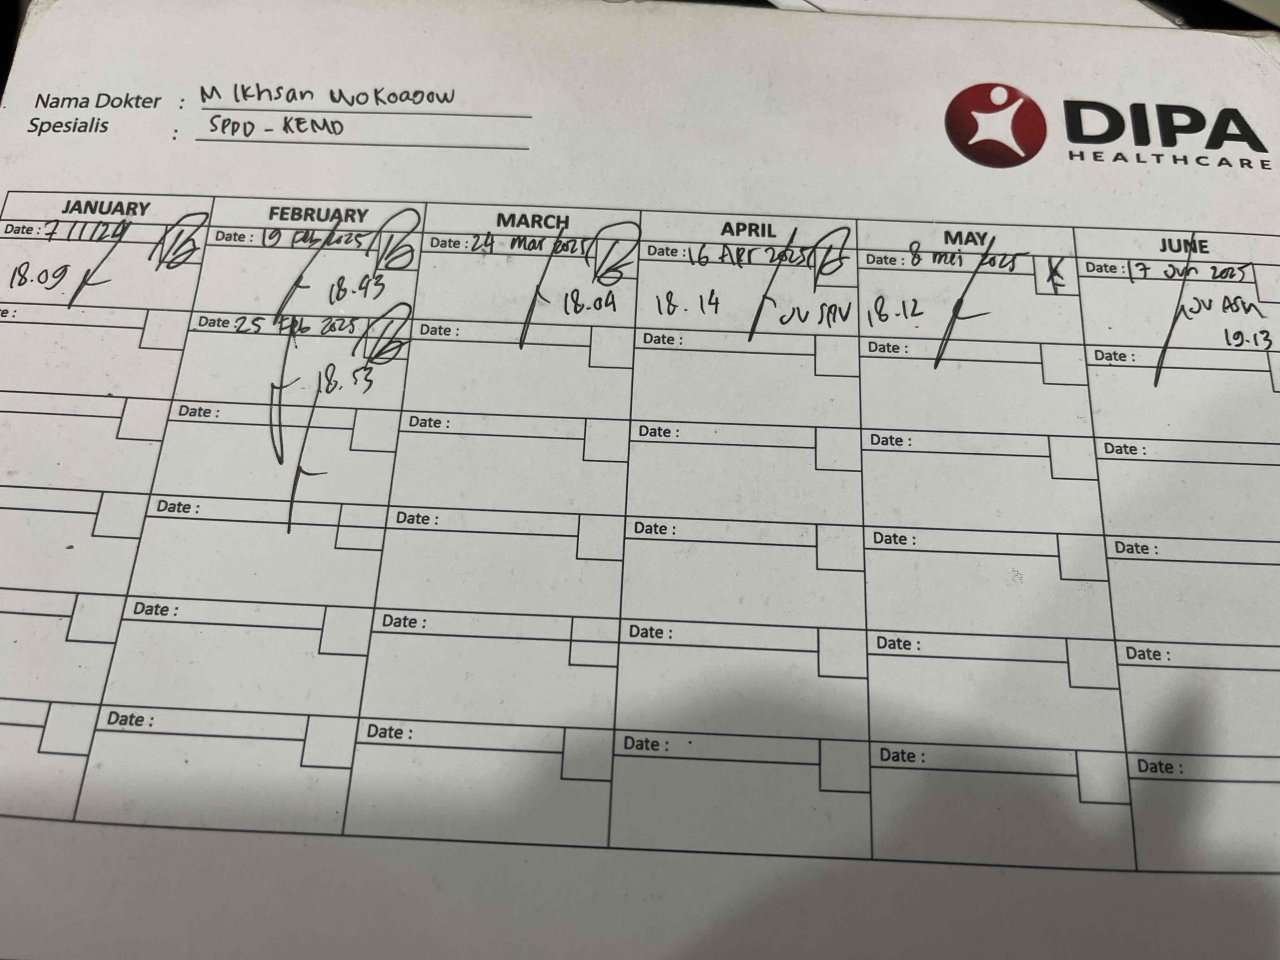 Nama Dokter : M Ikhsan Mokoagow
Spesialis : SPPD - KEMD
DIPA
HEALTHCARE
JANUARY FEBRUARY MARCH APRIL MAY JUNE
Date : 7 Date : 19 Feb 2025 Date : 24 Mar 2025 Date : 16 Apr 2025 Date : 8 mei 2025 Date : 17 Jun 2025
18.09 18.43 18.04 18.14 JV SPV 18.12 JV ASM
19.13
e: Date : 25 Feb 2025 Date : Date : Date : Date :
18.53
Date : Date : Date : Date : Date :
Date : Date : Date : Date : Date :
Date : Date : Date : Date : Date :
Date : Date : Date : Date : Date :